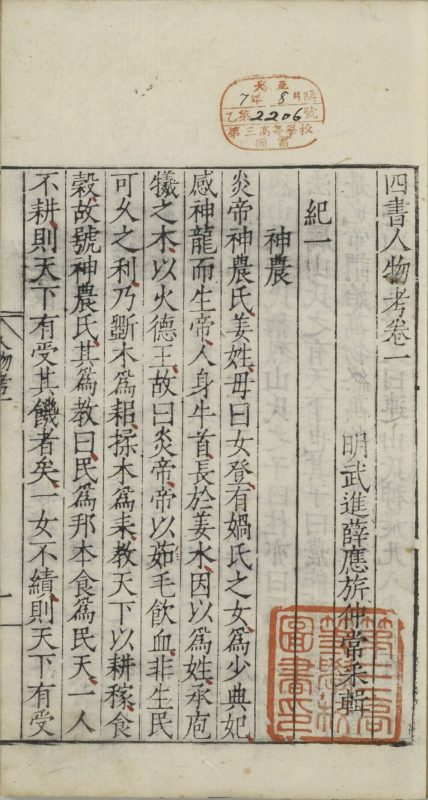 大正
7年8月購
乙第2206號
第三高等學校
圖書
四書人物考卷一
明武進薛應旂仲常甫輯
紀一
神農
炎帝神農氏姜姓母曰女登有媧氏之女爲少典妃
感神龍而生帝人身牛首長於姜水因以爲姓承庖
犧之木以火德王故曰炎帝帝以茹毛飲血非生民
可久之利乃斲木爲耜揉木爲耒教天下以耕稼食
穀故號神農氏其爲教曰民爲邦本食爲民天一人
不耕則天下有受其饑者矣一女不績則天下有受
人物考一
一
第三高
等學校
圖書印